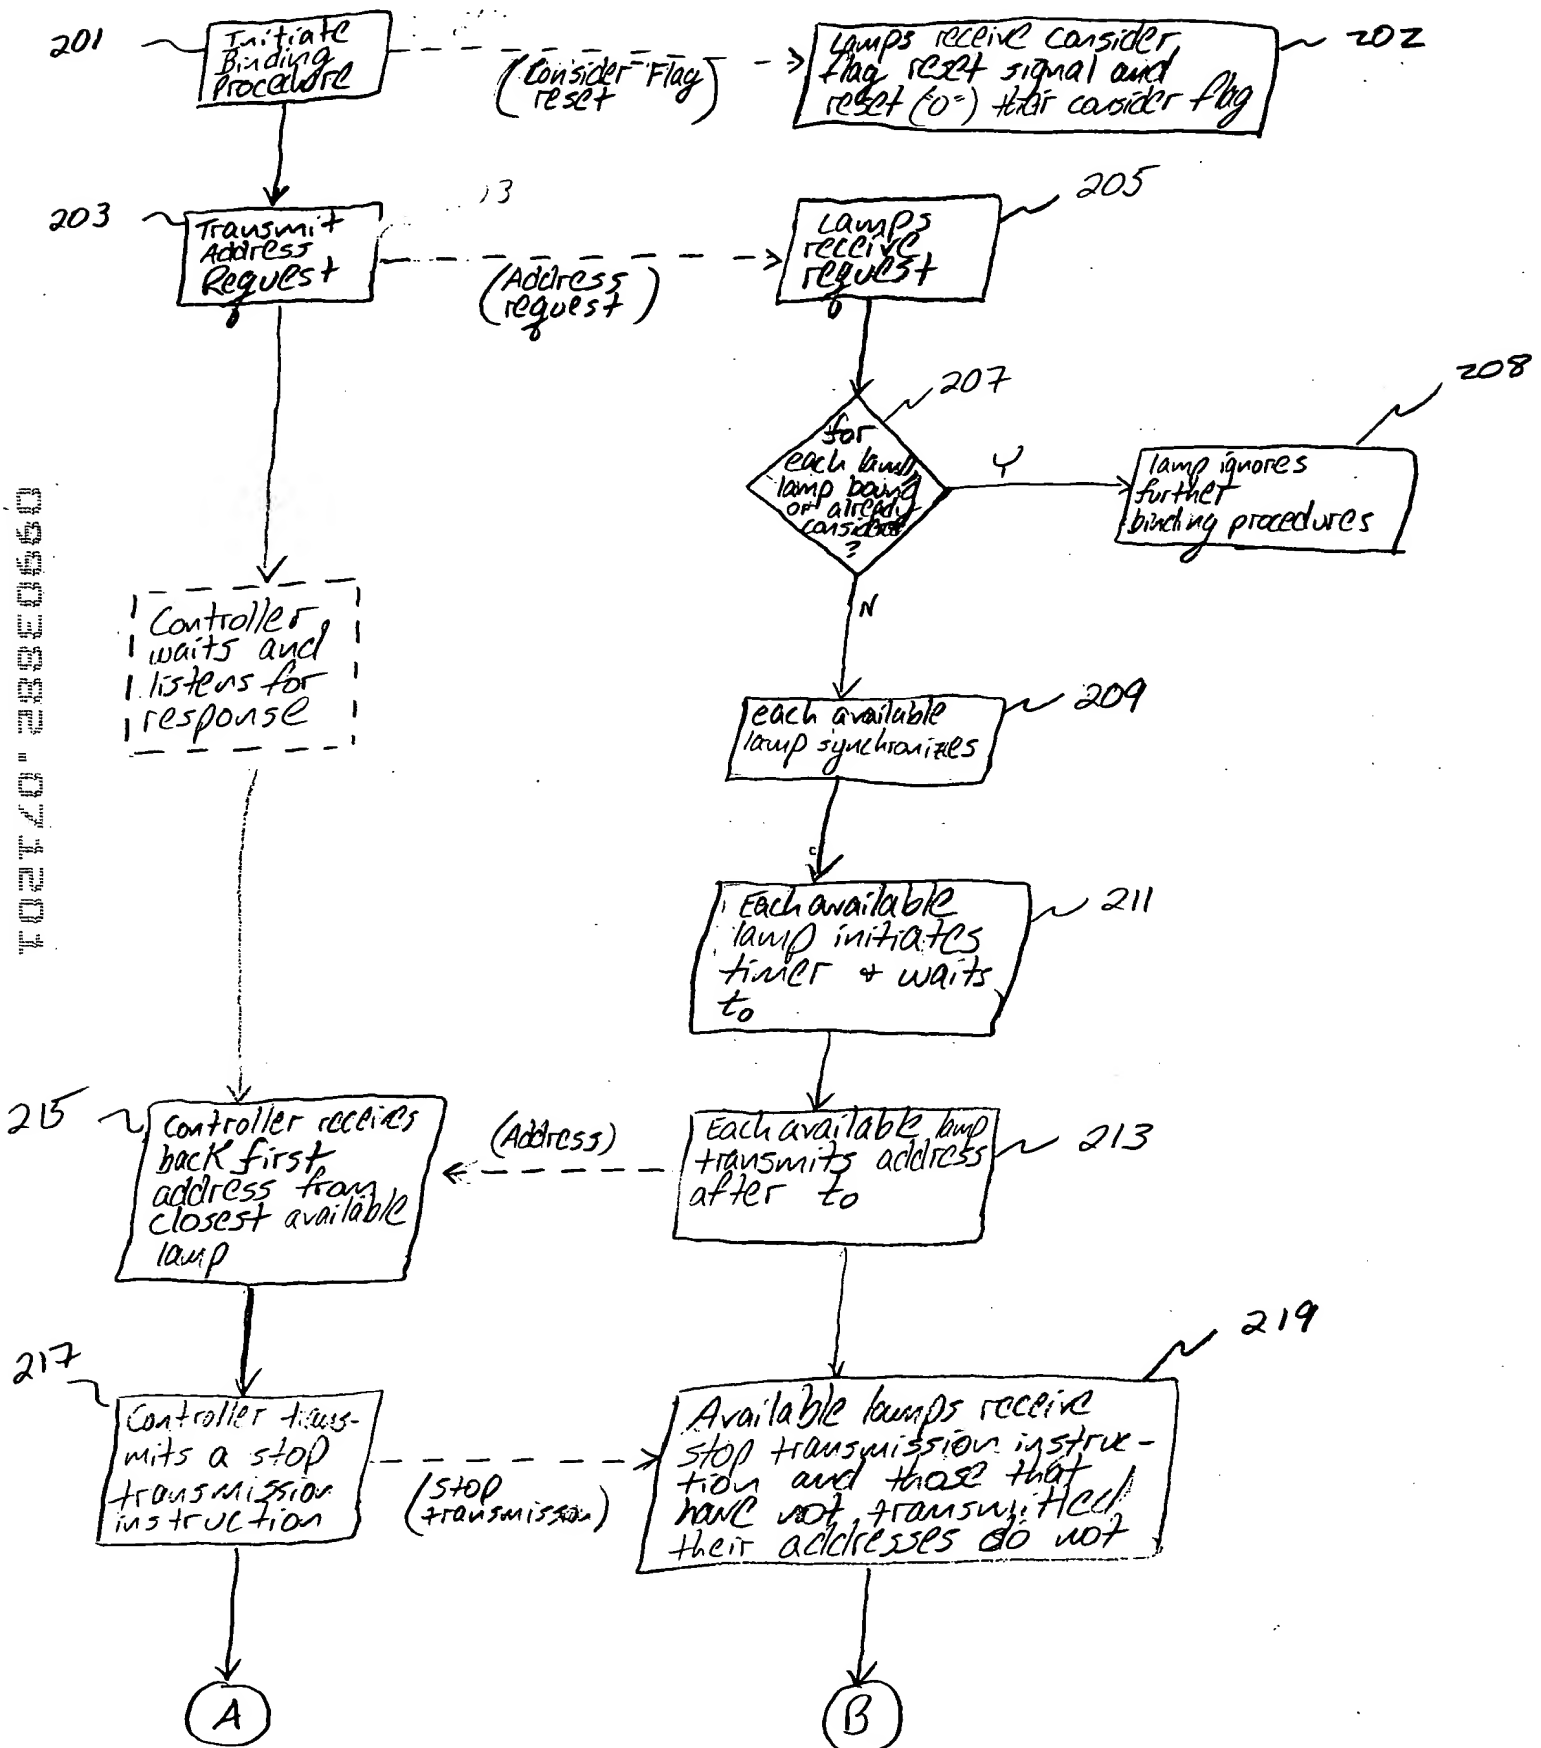 201
Initiate
Binding
Procedure
(Consider Flag
reset)
Lamps receive consider
flag reset signal and
reset ("0") their consider flag
202
203
Transmit
Address
Request
13
(Address
request)
Lamps
receive
request
205
207
for
each lamp,
lamp bound
or already
considered
?
Y
208
lamp ignores
further
binding procedures
N
Controller
waits and
listens for
response
each available
lamp synchronizes
209
Each available
lamp initiates
timer + waits
to
211
215
Controller receives
back first
address from
closest available
lamp
(Address)
Each available lamp
transmits address
after to
213
217
Controller trans-
mits a stop
transmission
instruction
(stop
transmission)
Available lamps receive
stop transmission instruc-
tion and those that
have not transmitted
their addresses do not
219
A
B
09903882.071201